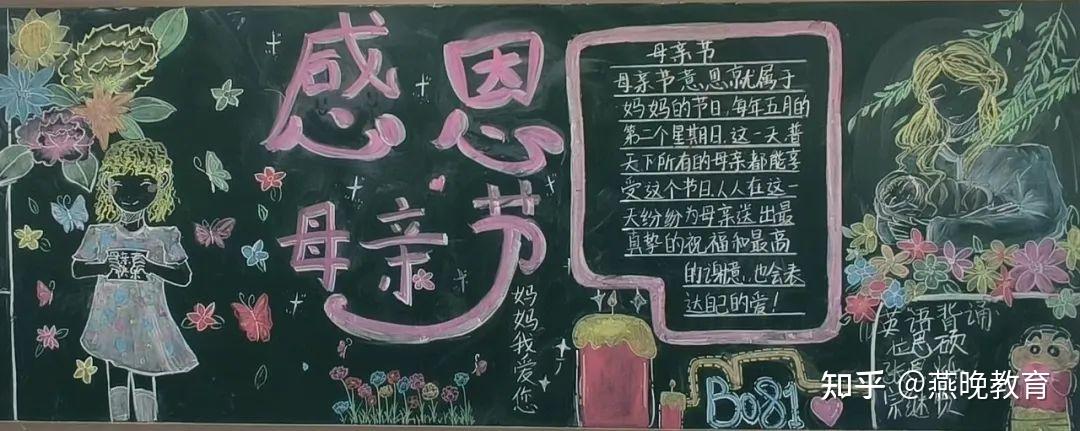 感恩
母亲节
母亲节
母亲节意思就属于
妈妈的节日,每年五月的
第二个星期日,这一天,普
天下所有的母亲都能享
受这个节日,人人在这一
天纷纷为母亲送出最
真挚的祝福和最高
的谢意,也会表
达自己的爱!
妈妈我爱您
B081
英语背诵
知乎 @燕晚教育